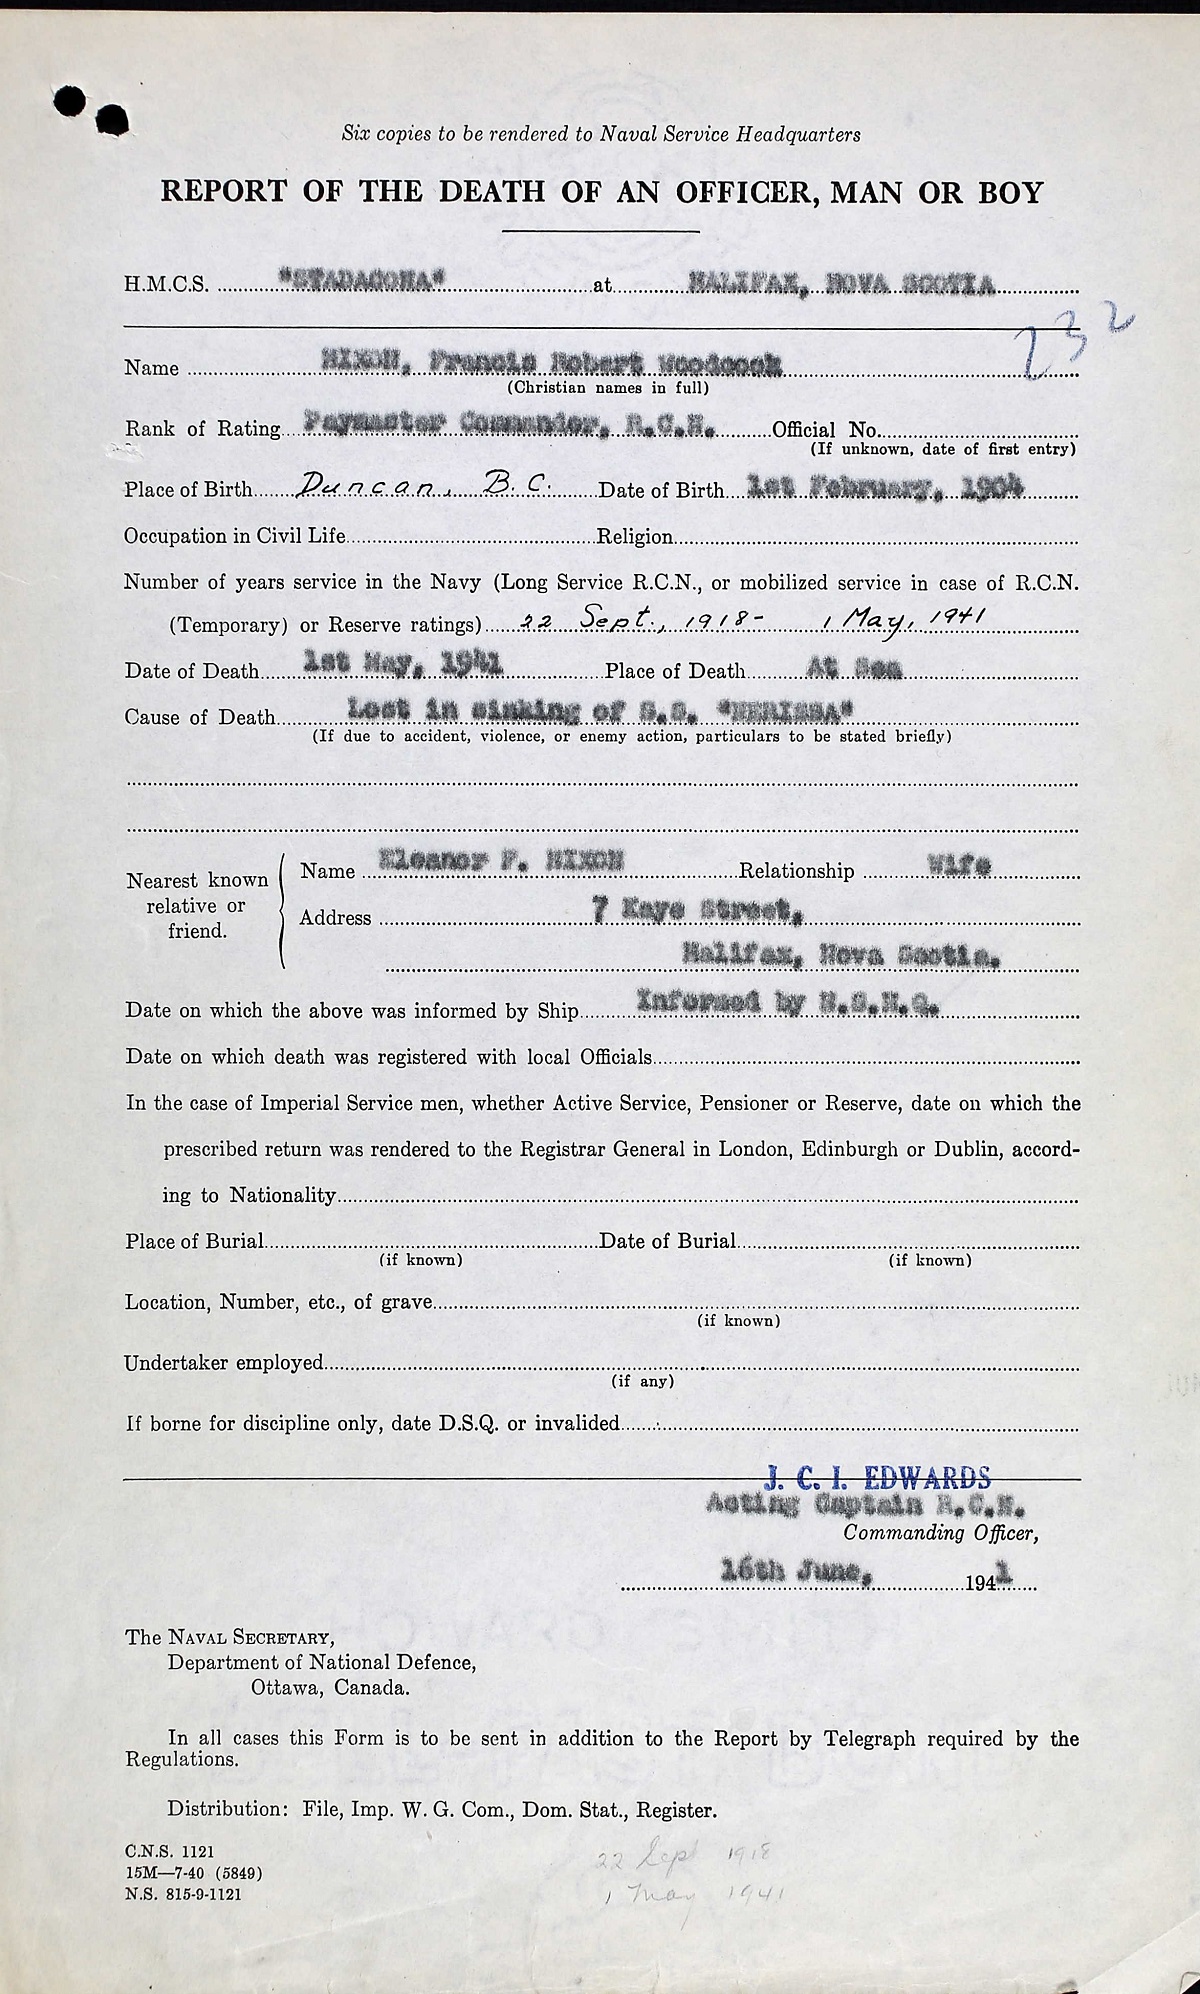 Six copies to be rendered to Naval Service Headquarters
REPORT OF THE DEATH OF AN OFFICER, MAN OR BOY
H.M.C.S. "STADACONA" at HALIFAX, NOVA SCOTIA
232
Name NIXON, Francis Robert Woodcock
(Christian names in full)
Rank of Rating Paymaster Commander, R.C.N. Official No.
(If unknown, date of first entry)
Place of Birth Duncan, B.C. Date of Birth 1st February, 1904
Occupation in Civil Life Religion
Number of years service in the Navy (Long Service R.C.N., or mobilized service in case of R.C.N.
(Temporary) or Reserve ratings) 22 Sept., 1918- 1 May, 1941
Date of Death 1st May, 1941 Place of Death At Sea
Cause of Death Lost in sinking of S.S. "NERISSA"
(If due to accident, violence, or enemy action, particulars to be stated briefly)
Nearest known relative or friend.
Name Eleanor F. NIXON Relationship Wife
Address 7 Kaye Street,
Halifax, Nova Scotia.
Date on which the above was informed by Ship Informed by N.S.H.Q.
Date on which death was registered with local Officials
In the case of Imperial Service men, whether Active Service, Pensioner or Reserve, date on which the
prescribed return was rendered to the Registrar General in London, Edinburgh or Dublin, accord-
ing to Nationality
Place of Burial Date of Burial
(if known) (if known)
Location, Number, etc., of grave
(if known)
Undertaker employed
(if any)
If borne for discipline only, date D.S.Q. or invalided
J. C. I. EDWARDS
Acting Captain R.C.N.
Commanding Officer,
16th June, 1941
The NAVAL SECRETARY,
Department of National Defence,
Ottawa, Canada.
In all cases this Form is to be sent in addition to the Report by Telegraph required by the
Regulations.
Distribution: File, Imp. W. G. Com., Dom. Stat., Register.
C.N.S. 1121
15M—7-40 (5849)
N.S. 815-9-1121
22 Sept 1918
1 May 1941